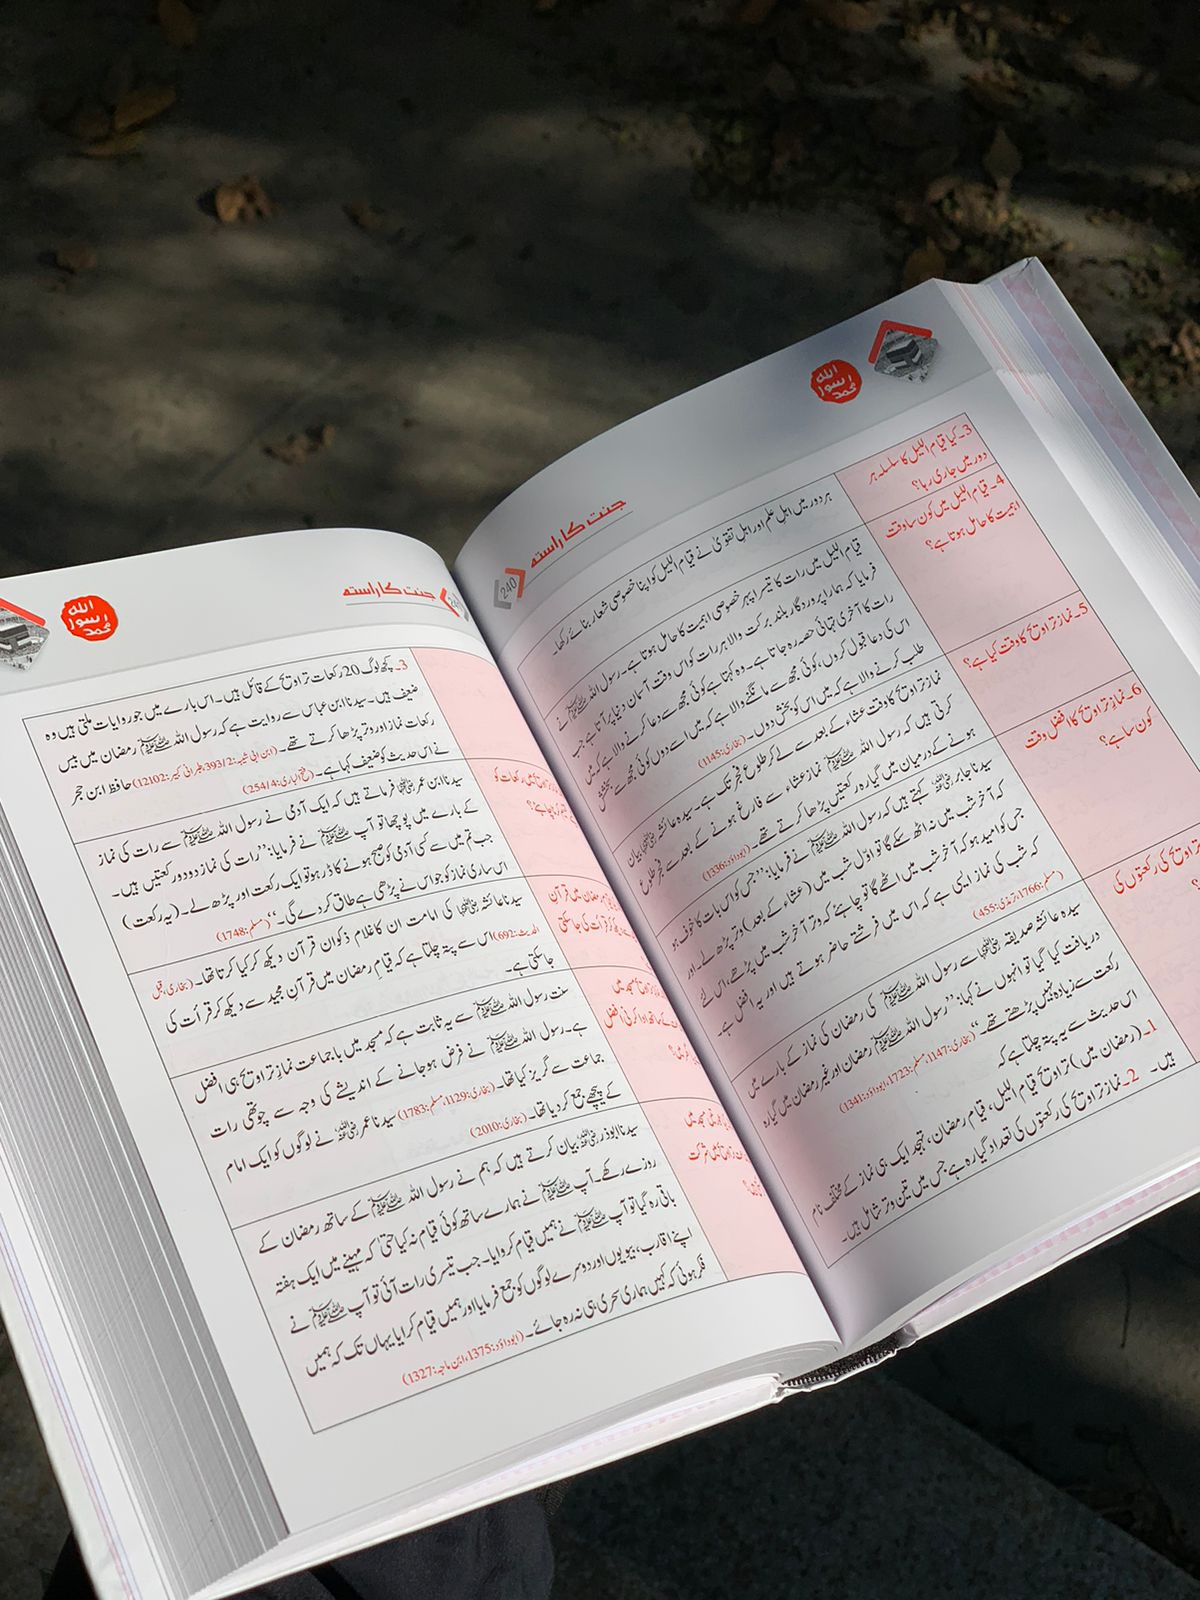 جنت کا راستہ
240
الله
رسول
محمد
3۔ کیا قیام اللیل کا سلسلہ ہر
دور میں جاری رہا؟
ہر دور میں اہلِ علم اور اہلِ تقویٰ نے قیام اللیل کو اپنا خصوصی شعار بنائے رکھا۔
4۔ قیام اللیل میں کون سا وقت
اہمیت کا حامل ہوتا ہے؟
قیام اللیل میں رات کا تیسرا پہر خصوصی اہمیت کا حامل ہوتا ہے۔ رسول اللہ ﷺ نے
فرمایا کہ ہمارا پروردگار بلند برکت والا ہر رات کو اس وقت آسمان دنیا پر آتا ہے جب
رات کا آخری تہائی حصہ رہ جاتا ہے۔ وہ کہتا ہے کوئی مجھ سے دعا کرنے والا ہے کہ میں
اس کی دعا قبول کروں، کوئی مجھ سے مانگنے والا ہے کہ میں اسے دوں کوئی مجھ سے بخشش
طلب کرنے والا ہے کہ میں اس کو بخش دوں۔ (بخاری: 1145)
5۔ نماز تراویح کا وقت کیا ہے؟
نماز تراویح کا وقت عشاء کے بعد سے لے کر طلوع فجر تک ہے۔ سیدہ عائشہ رضی اللہ عنہا بیان
کرتی ہیں کہ رسول اللہ ﷺ نماز عشاء سے فارغ ہونے کے بعد سے فجر طلوع
ہونے کے درمیان میں گیارہ رکعتیں پڑھا کرتے تھے۔ (ابوداؤد: 1336)
6۔ نمازِ تراویح کا افضل وقت
کون سا ہے؟
سیدنا جابر رضی اللہ عنہ کہتے ہیں کہ رسول اللہ ﷺ نے فرمایا: ’’جس کو اس بات کا خوف ہو
کہ آخر شب میں نہ اٹھ سکے گا تو اوّل شب میں (عشاء کے بعد) وتر پڑھ لے۔ اور
جس کو امید ہو کہ آخر شب میں اٹھے گا تو چاہئے کہ وتر آخر شب میں پڑھے، اس لئے
کہ شب کی نماز ایسی ہے کہ اس میں فرشتے حاضر ہوتے ہیں اور یہ افضل ہے۔
(مسلم: 1766، ترمذی: 455)
تراویح کی رکعتوں کی
سیدہ عائشہ صدیقہ رضی اللہ عنہا سے رسول اللہ ﷺ کی رمضان کی نماز کے بارے میں
دریافت کیا گیا تو انہوں نے کہا: ’’رسول اللہ ﷺ رمضان اور غیر رمضان میں گیارہ
رکعت سے زیادہ نہیں پڑھتے تھے۔‘‘ (بخاری: 1147، مسلم: 1723، ابوداؤد: 1341)
اس حدیث سے یہ پتہ چلتا ہے کہ
1۔ (رمضان میں) تراویح قیام اللیل، قیام رمضان، تہجد ایک ہی نماز کے مختلف نام
ہیں۔ 2۔ نماز تراویح کی رکعتوں کی تعداد گیارہ ہے جس میں تین وتر شامل ہیں۔
جنت کا راستہ
الله
رسول
محمد
3۔ کچھ لوگ 20 رکعات تراویح کے قائل ہیں۔ اس بارے میں جو روایات ملتی ہیں وہ
ضعیف ہیں۔ سیدنا ابن عباس سے روایت ہے کہ رسول اللہ ﷺ رمضان میں بیس
رکعات نماز اور وتر پڑھا کرتے تھے۔ (ابن ابی شیبہ: 393/2، طبرانی کبیر: 12102) حافظ ابن حجر
نے اس حدیث کو ضعیف کہا ہے۔ (فتح الباری: 254/4)
سیدنا ابن عمر رضی اللہ عنہما فرماتے ہیں کہ ایک آدمی نے رسول اللہ ﷺ سے رات کی نماز
کے بارے میں پوچھا تو آپ ﷺ نے فرمایا: ’’رات کی نماز دو دو رکعتیں ہیں۔
جب تم میں سے کسی آدمی کو صبح ہونے کا ڈر ہو تو ایک رکعت اور پڑھ لے۔ (یہ رکعت)
اس ساری نماز کو جو اس نے پڑھی ہے طاق کر دے گی۔‘‘ (مسلم: 1748)
سیدنا عائشہ رضی اللہ عنہا کی امامت ان کا غلام ذکوان قرآن دیکھ کر کیا کرتا تھا۔ (بخاری، قبل
الحدیث: 692) اس سے پتہ چلتا ہے کہ قیام رمضان میں قرآن مجید سے دیکھ کر قرأت کی
جا سکتی ہے۔
سنت رسول اللہ ﷺ سے یہ ثابت ہے کہ مسجد میں باجماعت نماز تراویح ہی افضل
ہے۔ رسول اللہ ﷺ نے فرض ہو جانے کے اندیشے کی وجہ سے چوتھی رات
جماعت سے گریز کیا تھا۔ (بخاری: 1129، مسلم: 1783) سیدنا عمر رضی اللہ عنہ نے لوگوں کو ایک امام
کے پیچھے جمع کر دیا تھا۔ (بخاری: 2010)
سیدنا ابوذر رضی اللہ عنہ بیان کرتے ہیں کہ ہم نے رسول اللہ ﷺ کے ساتھ رمضان کے
روزے رکھے۔ آپ ﷺ نے ہمارے ساتھ کوئی قیام نہ کیا حتیٰ کہ مہینے میں ایک ہفتہ
باقی رہ گیا تو آپ ﷺ نے ہمیں قیام کروایا۔ جب تیسری رات آئی تو آپ ﷺ نے
اپنے اقارب، بیویوں اور دوسرے لوگوں کو جمع فرمایا اور ہمیں قیام کرایا یہاں تک کہ ہمیں
فکر ہوئی کہ کہیں ہماری سحری ہی نہ رہ جائے۔ (ابوداؤد: 1375، ابن ماجہ: 1327)